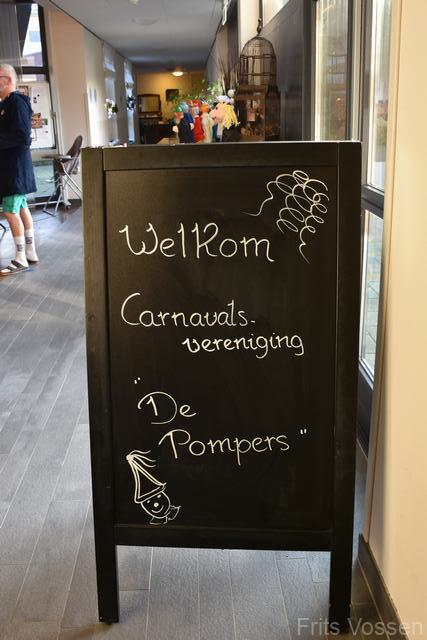 Welkom
Carnavals-
vereniging
"De
Pompers"
Frits Vossen